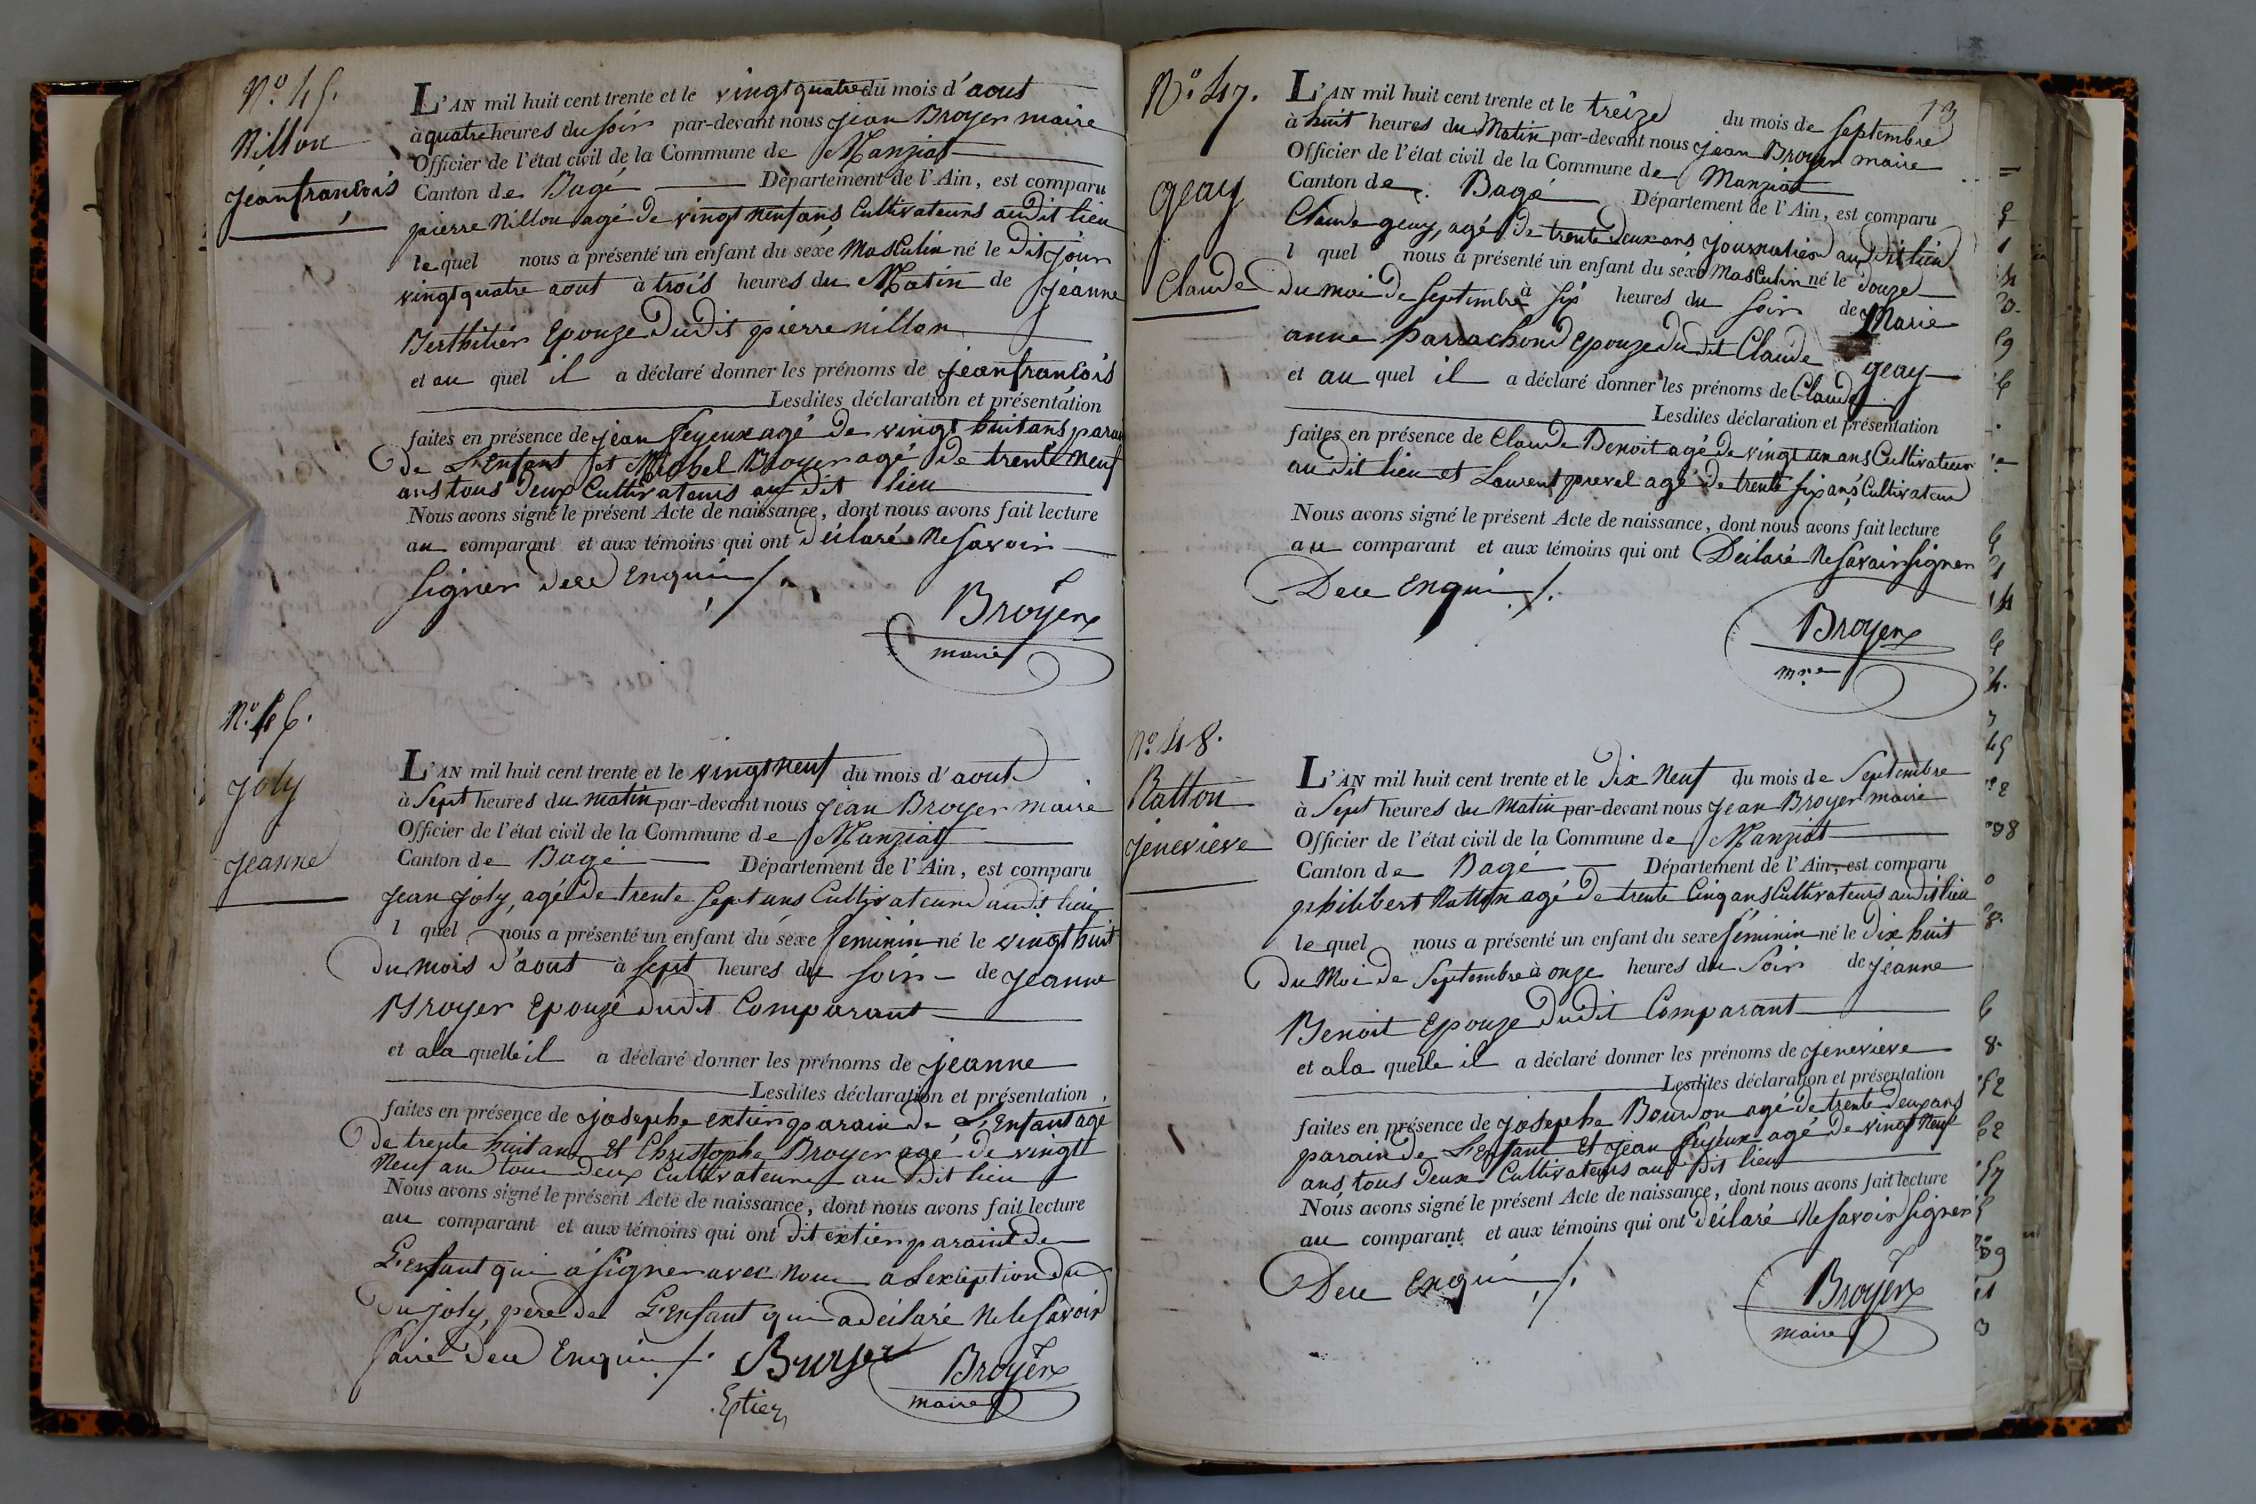 N.º 45.
Nillon
jeanfrancois
L'AN mil huit cent trente et le vingtquatre du mois d'aout
à quatre heures du soir par-devant nous jean Broyer maire
Officier de l'état civil de la Commune de Manziat
Canton de Bagé Département de l'Ain, est comparu
pierre Nillon agé de vingt neuf ans Cultivateurs audit lieu
le quel nous a présenté un enfant du sexe Masculin né le dit jour
vingtquatre aout à trois heures du Matin de jeanne
Berthilier Epouze dudit pierre nillon
et au quel il a déclaré donner les prénoms de jeanfrancois
Lesdites déclaration et présentation
faites en présence de jean feyeux agé de vingt huit ans parain
de L'Enfant et Michel Broyer agé de trente neuf
ans tous deux Cultivateurs au dit lieu
Nous avons signé le présent Acte de naissance, dont nous avons fait lecture
au comparant et aux témoins qui ont déclaré Ne savoir
signer dece Enquis /.
Broyer
maire
N.º 46.
Joly
jeanne
L'AN mil huit cent trente et le vingt neuf du mois d'aout
à sept heures du matin par-devant nous jean Broyer maire
Officier de l'état civil de la Commune de Manziat
Canton de Bagé Département de l'Ain, est comparu
jean joly, agé de trente sept ans Cultivateurs audit lieu
l quel nous a présenté un enfant du sexe feminin né le vingt huit
du mois d'aout à sept heures du soir de jeanne
Broyer Epouze dudit Comparant
et ala quelle il a déclaré donner les prénoms de jeanne
Lesdites déclaration et présentation
faites en présence de josephe extier parain de L'Enfant agé
de trente huit ans Et Christophe Broyer agé de vingt
Neuf ans tous deux Cultivateurs au dit lieu
Nous avons signé le présent Acte de naissance, dont nous avons fait lecture
au comparant et aux témoins qui ont dit extier parain de
L'enfant qui a signer avec Nous a Lexception du
du joly, pere de L'Enfant qui a déclaré Ne le savoir
faire dece Enquis /. Broyer Broyer
Extier maire
13
N.º 47.
geay
Claude
L'AN mil huit cent trente et le treize du mois de septembre
à huit heures du Matin par-devant nous jean Broyer maire
Officier de l'état civil de la Commune de Manziat
Canton de Bagé Département de l'Ain, est comparu
Claude geay, agé de trente deux ans journalier audit lieu
l quel nous a présenté un enfant du sexe Masculin né le douze
du moi de septembre à six heures du soir de Marie
anne parrachond Epouze dudit Claude geay
et au quel il a déclaré donner les prénoms de Claude
Lesdites déclaration et présentation
faites en présence de Claude Benoit agé de vingt un ans Cultivateur
au dit lieu et Laurent prevel agé de trente six ans Cultivateur
Nous avons signé le présent Acte de naissance, dont nous avons fait lecture
au comparant et aux témoins qui ont Déclaré Ne savoir signer
Dece Enquis /.
Broyer
mre
N.º 48.
Ratton
jenevieve
L'AN mil huit cent trente et le Dix Neuf du mois de Septembre
à sept heures du Matin par-devant nous jean Broyer maire
Officier de l'état civil de la Commune de Manziat
Canton de Bagé Département de l'Ain, est comparu
philibert Ratton agé de trente Cinq ans Cultivateurs audit lieu
le quel nous a présenté un enfant du sexe féminin né le dix huit
du Moi de Septembre à onze heures du soir de jeanne
Benoit Epouze dudit Comparant
et ala quelle il a déclaré donner les prénoms de jenevieve
Lesdites déclaration et présentation
faites en présence de josephe Bourdon agé de trente deux ans
parain de L'enfant Et jean feyeux agé de vingt Neuf
ans, tous Deux Cultivateurs au dit lieu
Nous avons signé le présent Acte de naissance, dont nous avons fait lecture
au comparant et aux témoins qui ont déclaré Ne savoir signer
Dece Enquis /.
Broyer
maire